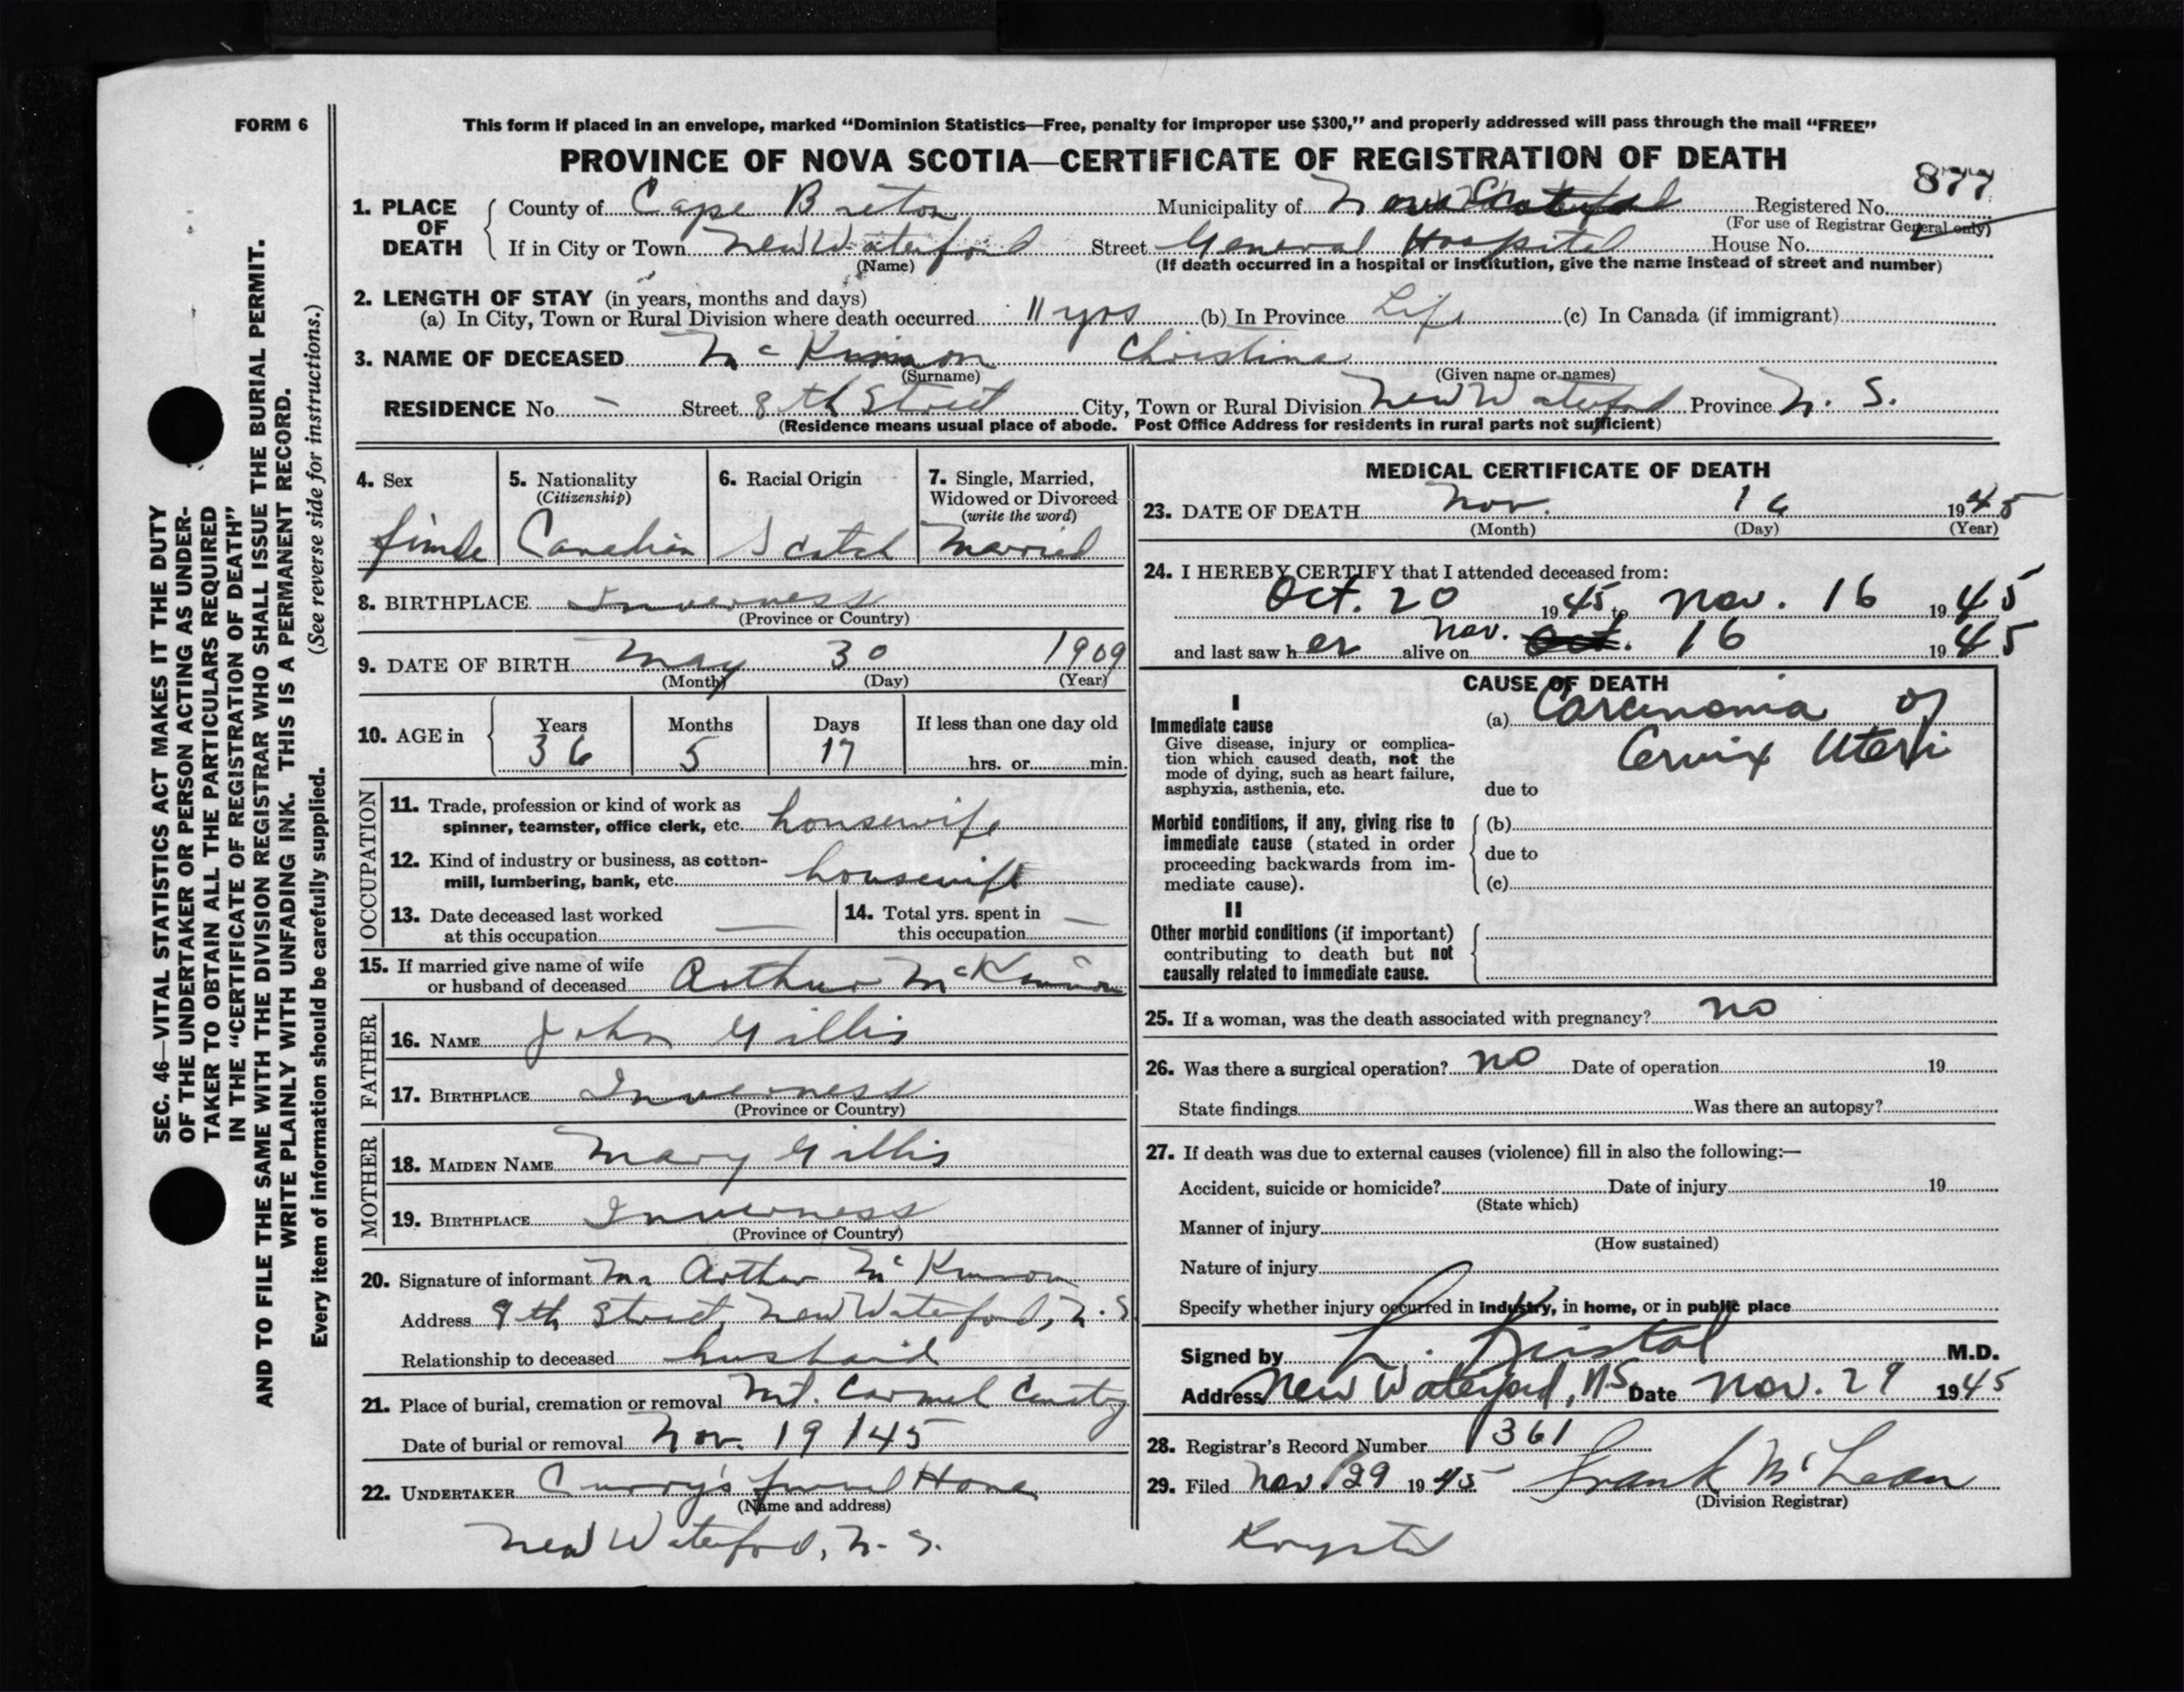 FORM 6
This form if placed in an envelope, marked “Dominion Statistics—Free, penalty for improper use $300,” and properly addressed will pass through the mail “FREE”
PROVINCE OF NOVA SCOTIA—CERTIFICATE OF REGISTRATION OF DEATH
877
1. PLACE OF DEATH
County of Cape Breton Municipality of New Waterford Registered No.
(For use of Registrar General only)
If in City or Town New Waterford Street General Hospital House No.
(Name) (If death occurred in a hospital or institution, give the name instead of street and number)
2. LENGTH OF STAY (in years, months and days)
(a) In City, Town or Rural Division where death occurred 11 yrs (b) In Province Life (c) In Canada (if immigrant)
3. NAME OF DECEASED McKinnon Christina
(Surname) (Given name or names)
RESIDENCE No. - Street 8th Street City, Town or Rural Division New Waterford Province N. S.
(Residence means usual place of abode. Post Office Address for residents in rural parts not sufficient)
4. Sex 5. Nationality 6. Racial Origin 7. Single, Married,
(Citizenship) Widowed or Divorced
(write the word)
female Canadian Scotch Married
8. BIRTHPLACE Inverness
(Province or Country)
9. DATE OF BIRTH May 30 1909
(Month) (Day) (Year)
10. AGE in Years Months Days If less than one day old
36 5 17 hrs. or min.
OCCUPATION
11. Trade, profession or kind of work as
spinner, teamster, office clerk, etc. housewife
12. Kind of industry or business, as cotton-
mill, lumbering, bank, etc. housewife
13. Date deceased last worked 14. Total yrs. spent in
at this occupation — this occupation —
15. If married give name of wife
or husband of deceased Arthur McKinnon
FATHER
16. NAME John Gillis
17. BIRTHPLACE Inverness
(Province or Country)
MOTHER
18. MAIDEN NAME Mary Gillis
19. BIRTHPLACE Inverness
(Province or Country)
20. Signature of informant Mr Arthur McKinnon
Address 8th Street, New Waterford, N.S
Relationship to deceased husband
21. Place of burial, cremation or removal Mt. Carmel
Date of burial or removal Nov. 19/45
22. UNDERTAKER Curry's Funeral Home
(Name and address)
New Waterford, N. S.
MEDICAL CERTIFICATE OF DEATH
23. DATE OF DEATH Nov. 16 1945
(Month) (Day) (Year)
24. I HEREBY CERTIFY that I attended deceased from:
Oct. 20 1945 to Nov. 16 1945
and last saw her alive on Nov. Oct. 16 1945
CAUSE OF DEATH
I
Immediate cause
Give disease, injury or complica-
tion which caused death, not the
mode of dying, such as heart failure,
asphyxia, asthenia, etc.
(a) Carcinoma of
Cervix Uteri
due to
Morbid conditions, if any, giving rise to
immediate cause (stated in order
proceeding backwards from im-
mediate cause).
(b)
due to
(c)
II
Other morbid conditions (if important)
contributing to death but not
causally related to immediate cause.
25. If a woman, was the death associated with pregnancy? no
26. Was there a surgical operation? no Date of operation 19
State findings Was there an autopsy?
27. If death was due to external causes (violence) fill in also the following:—
Accident, suicide or homicide? Date of injury 19
(State which)
Manner of injury
(How sustained)
Nature of injury
Specify whether injury occurred in industry, in home, or in public place
Signed by L. Kristal M.D.
Address New Waterford, NS. Date Nov. 29 1945
28. Registrar's Record Number 361
29. Filed Nov. 29 1945 Frank McLean
(Division Registrar)
Krystal
SEC. 46—VITAL STATISTICS ACT MAKES IT THE DUTY
OF THE UNDERTAKER OR PERSON ACTING AS UNDER-
TAKER TO OBTAIN ALL THE PARTICULARS REQUIRED
IN THE “CERTIFICATE OF REGISTRATION OF DEATH”
AND TO FILE THE SAME WITH THE DIVISION REGISTRAR WHO SHALL ISSUE THE BURIAL PERMIT.
WRITE PLAINLY WITH UNFADING INK. THIS IS A PERMANENT RECORD.
Every item of information should be carefully supplied. (See reverse side for instructions.)